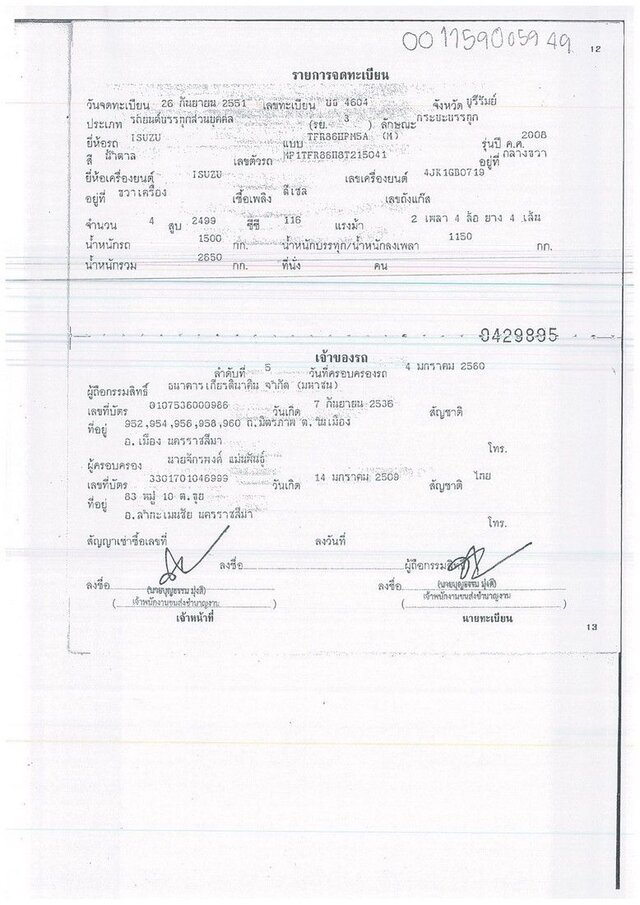 001159005949
12
รายการจดทะเบียน
วันจดทะเบียน 26 กันยายน 2551 เลขทะเบียน 4604 จังหวัด บุรีรัมย์
ประเภท รถยนต์บรรทุกส่วนบุคคล (รย. 3 ) ลักษณะ กระบะบรรทุก
ยี่ห้อรถ ISUZU แบบ TFR86HPM5A (M) รุ่นปี ค.ศ. 2008
สี น้ำตาล เลขตัวรถ MP1TFR86H8T215041 อยู่ที่ กลางขวา
ยี่ห้อเครื่องยนต์ ISUZU เลขเครื่องยนต์ 4JK1GB0719
อยู่ที่ ขวาเครื่อง เชื้อเพลิง ดีเซล เลขถังแก๊ส
จำนวน 4 สูบ 2499 ซีซี 116 แรงม้า 2 เพลา 4 ล้อ ยาง 4 เส้น
น้ำหนักรถ 1500 กก. น้ำหนักบรรทุก/น้ำหนักลงเพลา 1150 กก.
น้ำหนักรวม 2650 กก. ที่นั่ง คน
0429895
เจ้าของรถ
ลำดับที่ 5 วันที่ครอบครองรถ 4 มกราคม 2560
ผู้ถือกรรมสิทธิ์ ธนาคารเกียรตินาคิน จำกัด (มหาชน)
เลขที่บัตร 0107536000986 วันเกิด 7 กันยายน 2536 สัญชาติ
ที่อยู่ 952,954,956,958,960 ถ.มิตรภาพ ต.ในเมือง
อ.เมือง นครราชสีมา โทร.
ผู้ครอบครอง นายจักรพงค์ แม่นพันธุ์
เลขที่บัตร 3301701046999 วันเกิด 14 มกราคม 2509 สัญชาติ ไทย
ที่อยู่ 83 หมู่ 10 ต.ขุย
อ.ลำทะเมนชัย นครราชสีมา โทร.
สัญญาเช่าซื้อเลขที่ ลงวันที่
ลงชื่อ ผู้ถือกรรมสิทธิ์
ลงชื่อ (นายบุญธรรม มุ่งดี) ลงชื่อ (นายบุญธรรม มุ่งดี)
( เจ้าพนักงานขนส่งชำนาญงาน ) ( เจ้าพนักงานขนส่งชำนาญงาน )
เจ้าหน้าที่ นายทะเบียน
13